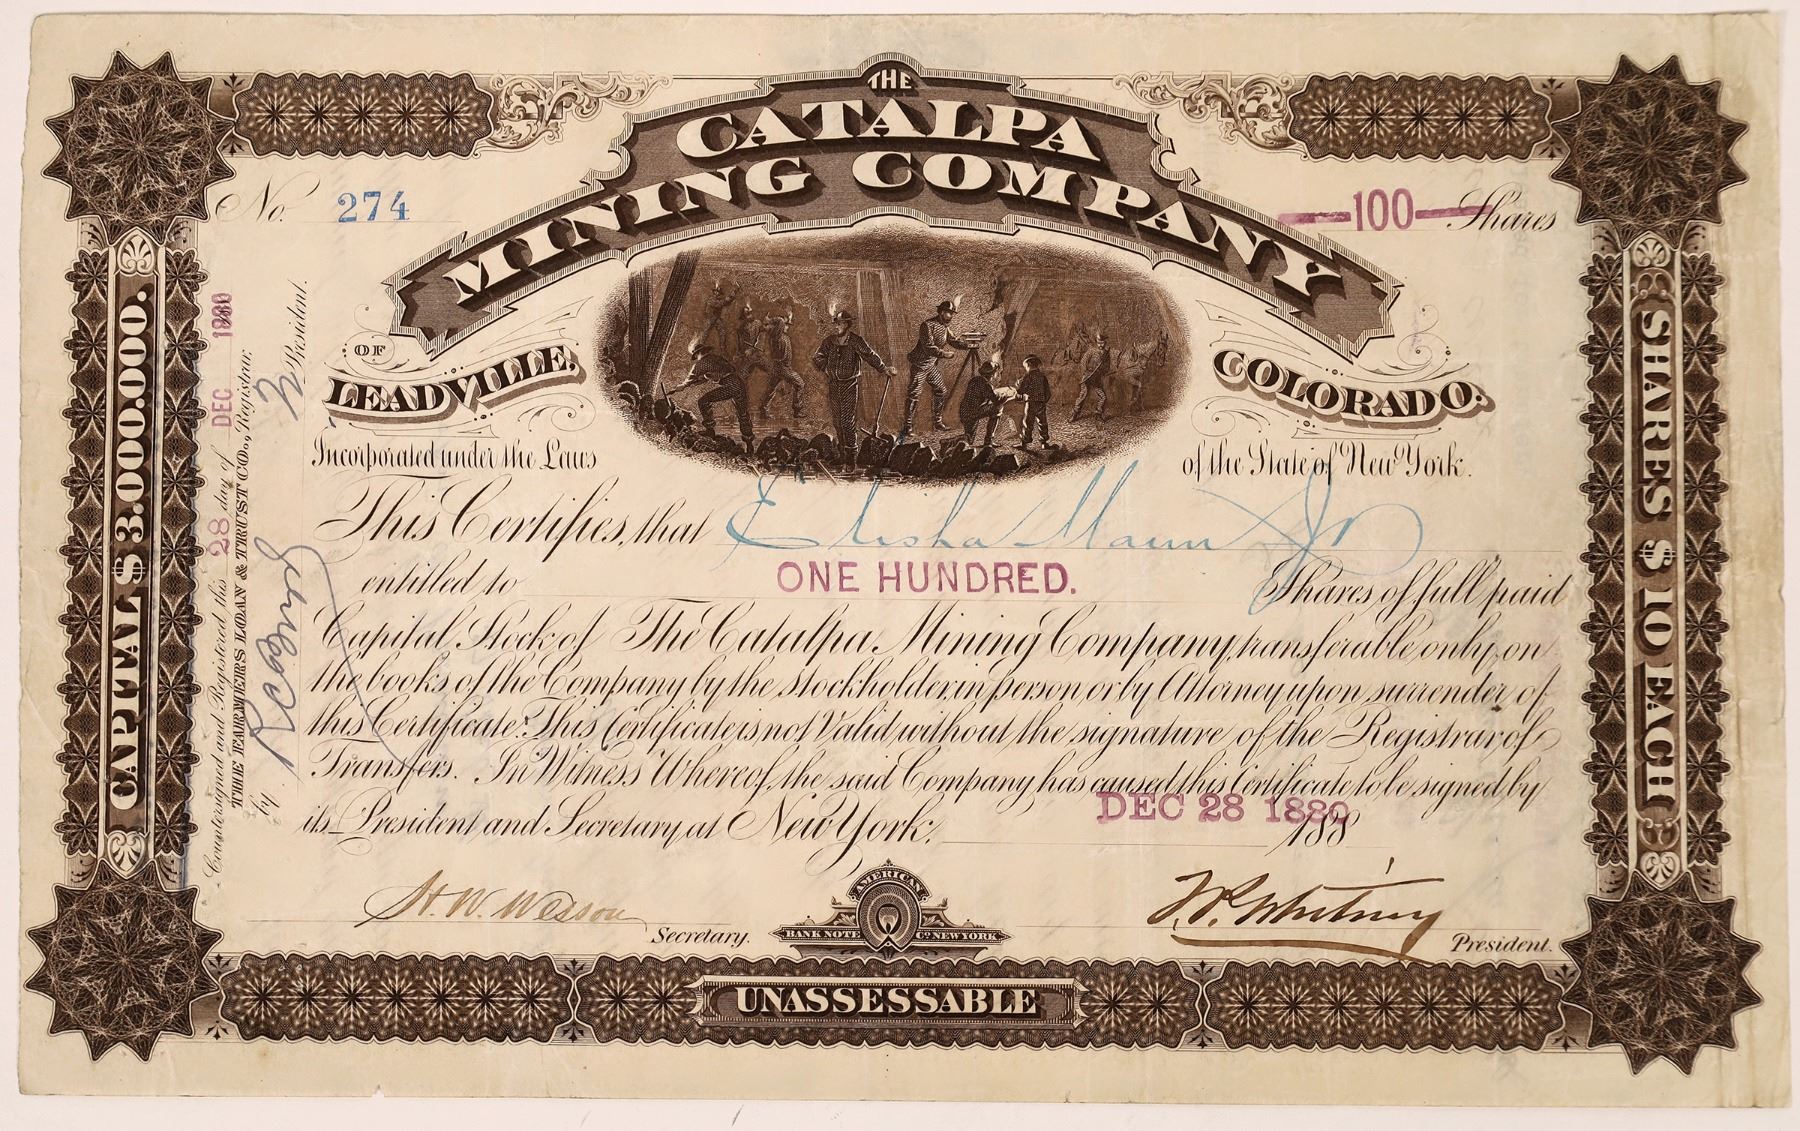 THE
CATALPA
MINING COMPANY
No. 274
—100— Shares
OF
LEADVILLE,
COLORADO.
Incorporated under the Laws of the State of New York.
This Certifies, that Elisha Mann Jr
entitled to ONE HUNDRED. Shares of full paid
Capital Stock of The Catalpa Mining Company, transferable only on
the books of the Company by the stockholder, in person, or by Attorney upon surrender of
this Certificate. This Certificate is not Valid without the signature of the Registrar of
Transfers. In Witness Whereof, the said Company has caused this Certificate to be signed by
its President and Secretary, at New York, DEC 28 1880, 188
H. W. Wesson Secretary.
AMERICAN
BANK NOTE CO. NEW YORK
Whitney President.
UNASSESSABLE
CAPITAL $3.000.000.
SHARES $10 EACH
Countersigned and Registered this 28 day of DEC 1880
THE FARMERS LOAN & TRUST CO., Registrar,
by President.